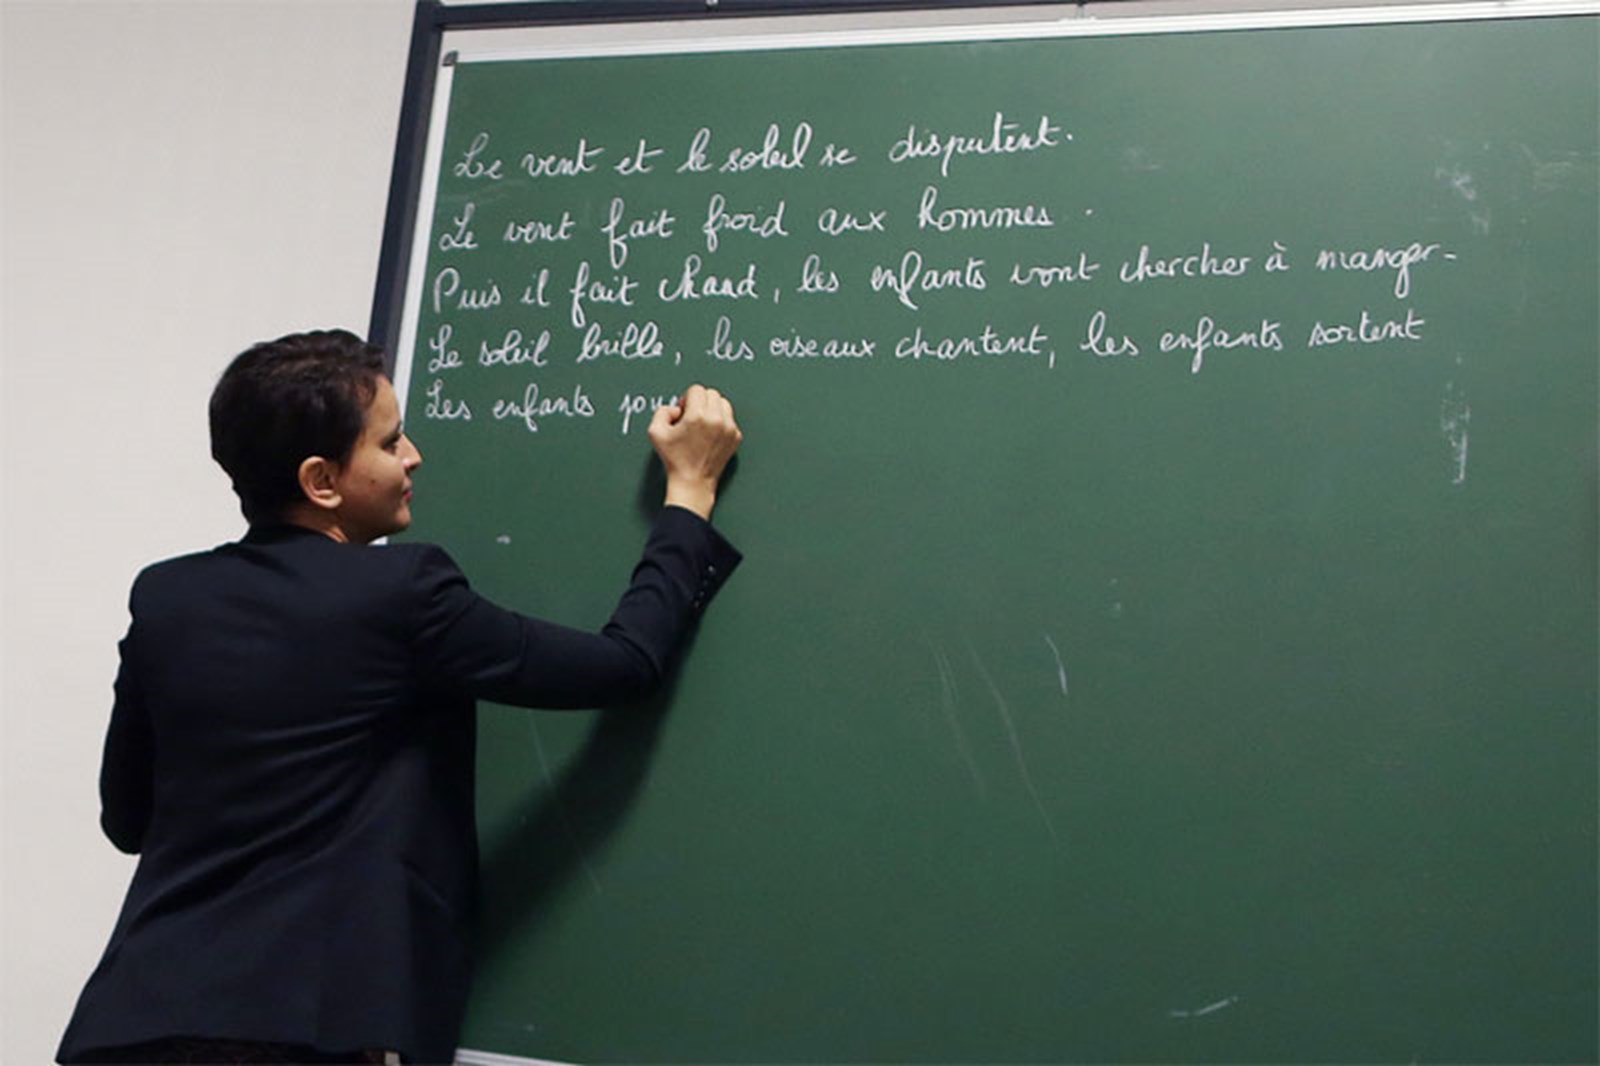 Le vent et le soleil se disputent.
Le vent fait froid aux hommes.
Puis il fait chaud, les enfants vont chercher à manger.
Le soleil brille, les oiseaux chantent, les enfants sortent
Les enfants joue